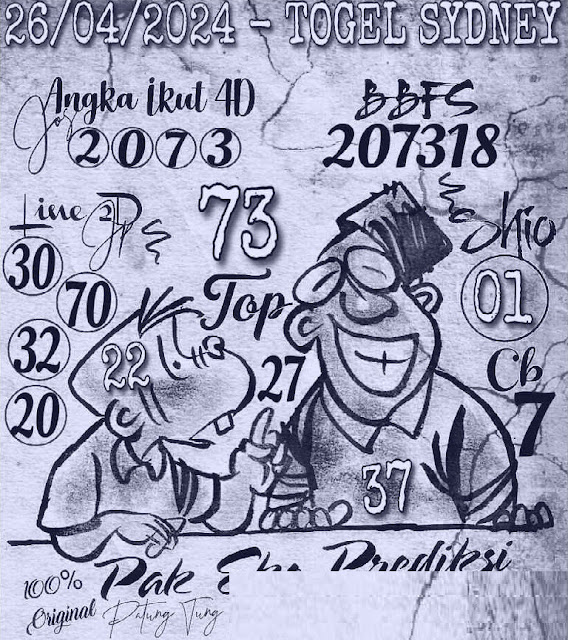 26/04/2024 - TOGEL SYDNEY
Angka Ikut 4D
Jos
2 0 7 3
BBFS
207318
Line 2D
Jp
73
Shio
30
01
70
Top
32
22
27
Cb
20
7
37
Pak Eko Prediksi
100%
Original
Patung Tung